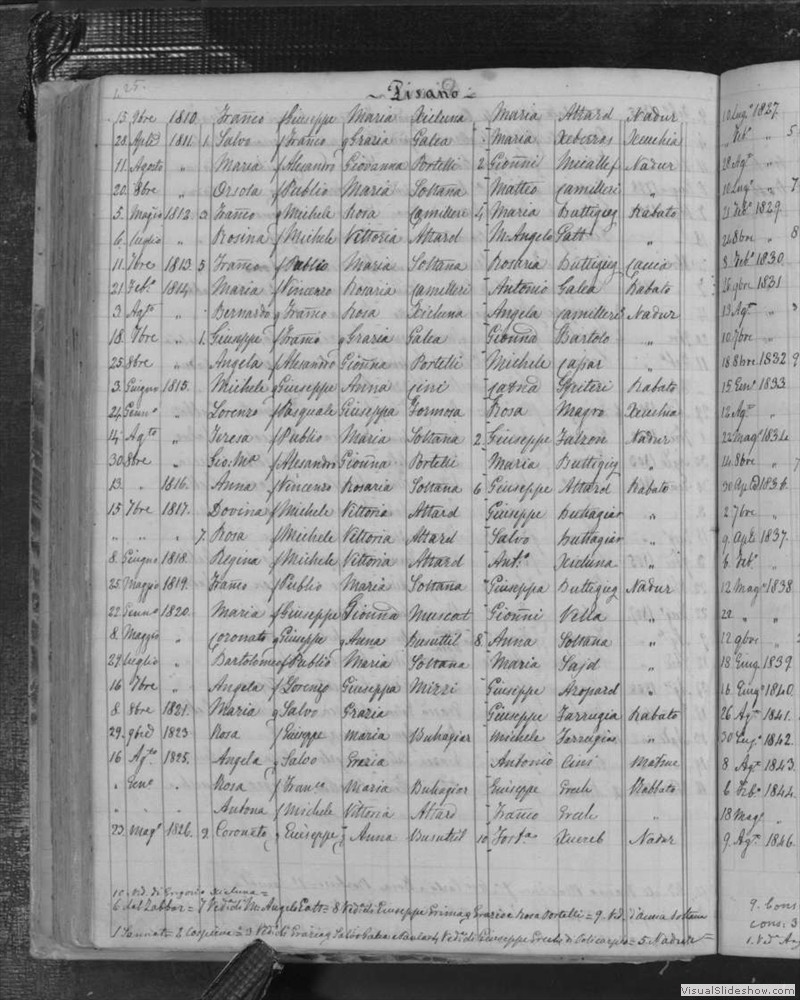 25.
Pisano
15 9bre 1810. Franco f Giuseppe Maria Xicluna Maria Attard Nadur
28 Aple 1811. 1. Salvo f Franco q Grazia Galea Maria Xeberras Xeuchia
11 Agosto " Maria f Alesandro Giovanna Portelli 2 Gionni Micallef Nadur
20 8bre " Orsola f Publio Maria Soltana Matteo Camilleri "
5 Maggio 1812. 3 Franco q Michele Rosa Camilleri 4 Maria Buttigieg Rabato
6 Luglio " Rosina f Michele Vittoria Attard M. Angelo Gatt "
11 7bre 1813. 5 Franco f Publio Maria Soltana Rosaria Buttigieg
21 Feb. 1814. Maria f Vincenzo Rosaria Camilleri Antonio Galea Rabato
3 Agto " Bernardo q Franco Rosa Xicluna Angela Camilleri Nadur
18 7bre " 1. Giuseppe f Franco q Grazia Galea Gionna Bartolo "
25 8bre " Angela f Alesandro Gionna Portelli Michele Capar "
3 Giugno 1815. Michele q Giuseppe Anna Cini Spiteri Rabato
24 " Lorenzo f Pasquale Giuseppa Formosa Rosa Magro Xeuchia
14 Agto " Teresa f Publio Maria Soltana 2 Giuseppe Falzon Nadur
30 8bre " Gio. Ma f Alesandro Gionna Portelli Maria Buttigieg "
13 " 1816. Anna f Vincenzo Rosaria Soltana 6 Giuseppe Attard Rabato
15 7bre 1817. Dovina f Michele Vittoria Attard Giuseppe Buhagiar "
" " " 7. Rosa f Michele Vittoria Attard Salvo Buttagiar "
8 Giugno 1818. Regina f Michele Vittoria Attard Ant.o Xicluna "
25 Maggio 1819. Franco f Publio Maria Soltana Giuseppa Buttigieg Nadur
22 1820. Maria f Giuseppe Gionna Muscat Gionni Vella "
8 Maggio " Coronato q Giuseppe q Anna Busuttil 8 Anna Soltana "
29 Luglio " Bartolomeo f Publio Maria Soltana Maria Sajd "
16 7bre " Angela f Lorenzo Giuseppa Mizzi Giuseppe Axopard "
8 8bre 1821. Maria q Salvo Grazia Giuseppe Farrugia Rabato
29 9bre 1823 Rosa f Giuseppe Maria Buhagiar Michele Farrugia "
16 Agto 1825. Angela f Salvo Grazia Antonio Cini
" " Rosa f Franco Maria Buhagiar Giuseppe Grech Rabbato
" " Antona f Michele Vittoria Attard Franco Grech "
23 Mago 1826. 9 Coronato q Giuseppe q Anna Busuttil 10 Xuereb Nadur
10 Ved. di Grigorio Xicluna =
6 dal Zabbar = 7 Ved. di M. Angelo Gatt = 8 Ved. di Giuseppe Grima q Grazia e Rosa Portelli = 9. Ved. d'Anna Soltana
1 Sannat = 2 Caspiano = 3 Ved. di Grazia q Salvo Galea e Paola 4 Ved. di Giuseppe Grech di Policarpio = 5. Nadur =
1837.
" Feb. " 5
28 Agto "
" 7
21 Feb. 1829.
24 8bre " 8
3 Feb. 1830.
26 9bre 1831
13 Agto "
10 7bre "
18 8bre 1832 9
15 1833
12 Ag. "
22 Mago 1834
14 8bre "
30 Aple 1836.
2 7bre "
9 Aple 1837.
6 Feb. "
12 Mago 1838
22 " "
12 9bre "
18 Giug. 1839
16 Giug. 1840.
26 Ag. 1841.
30 1842.
8 Ag. 1843.
6 Feb. 1844.
18 Mag. "
9 Ag. 1846.
9. Cons
cons. 3
VisualSlideshow.com